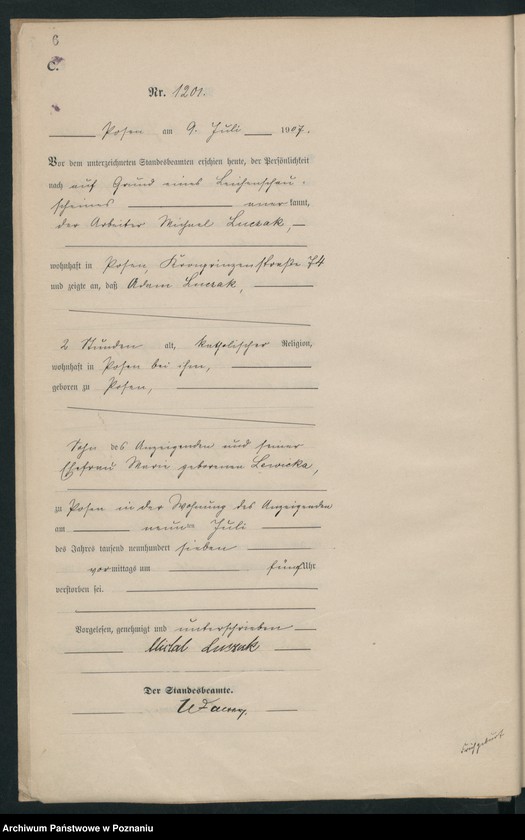 6
C.
Nr. 1201.
Posen am 9. Juli 1907.
Vor dem unterzeichneten Standesbeamten erschien heute, der Persönlichkeit
nach auf Grund eines Leichenschau-
scheines anerkannt,
der Arbeiter Michael Luczak,
wohnhaft in Posen, Kronprinzenstraße 74
und zeigte an, daß Adam Luczak,
2 Stunden alt, katholischer Religion,
wohnhaft in Posen bei ihm,
geboren zu Posen,
Sohn des Anzeigenden und seiner
Ehefrau Marie geborenen Lewicka,
zu Posen in der Wohnung des Anzeigenden
am neunten Juli
des Jahres tausend neunhundert sieben
vormittags um fünf Uhr
verstorben sei.
Vorgelesen, genehmigt und unterschrieben
Michał Luczak
Der Standesbeamte.
Frühgeburt
Archiwum Państwowe w Poznaniu